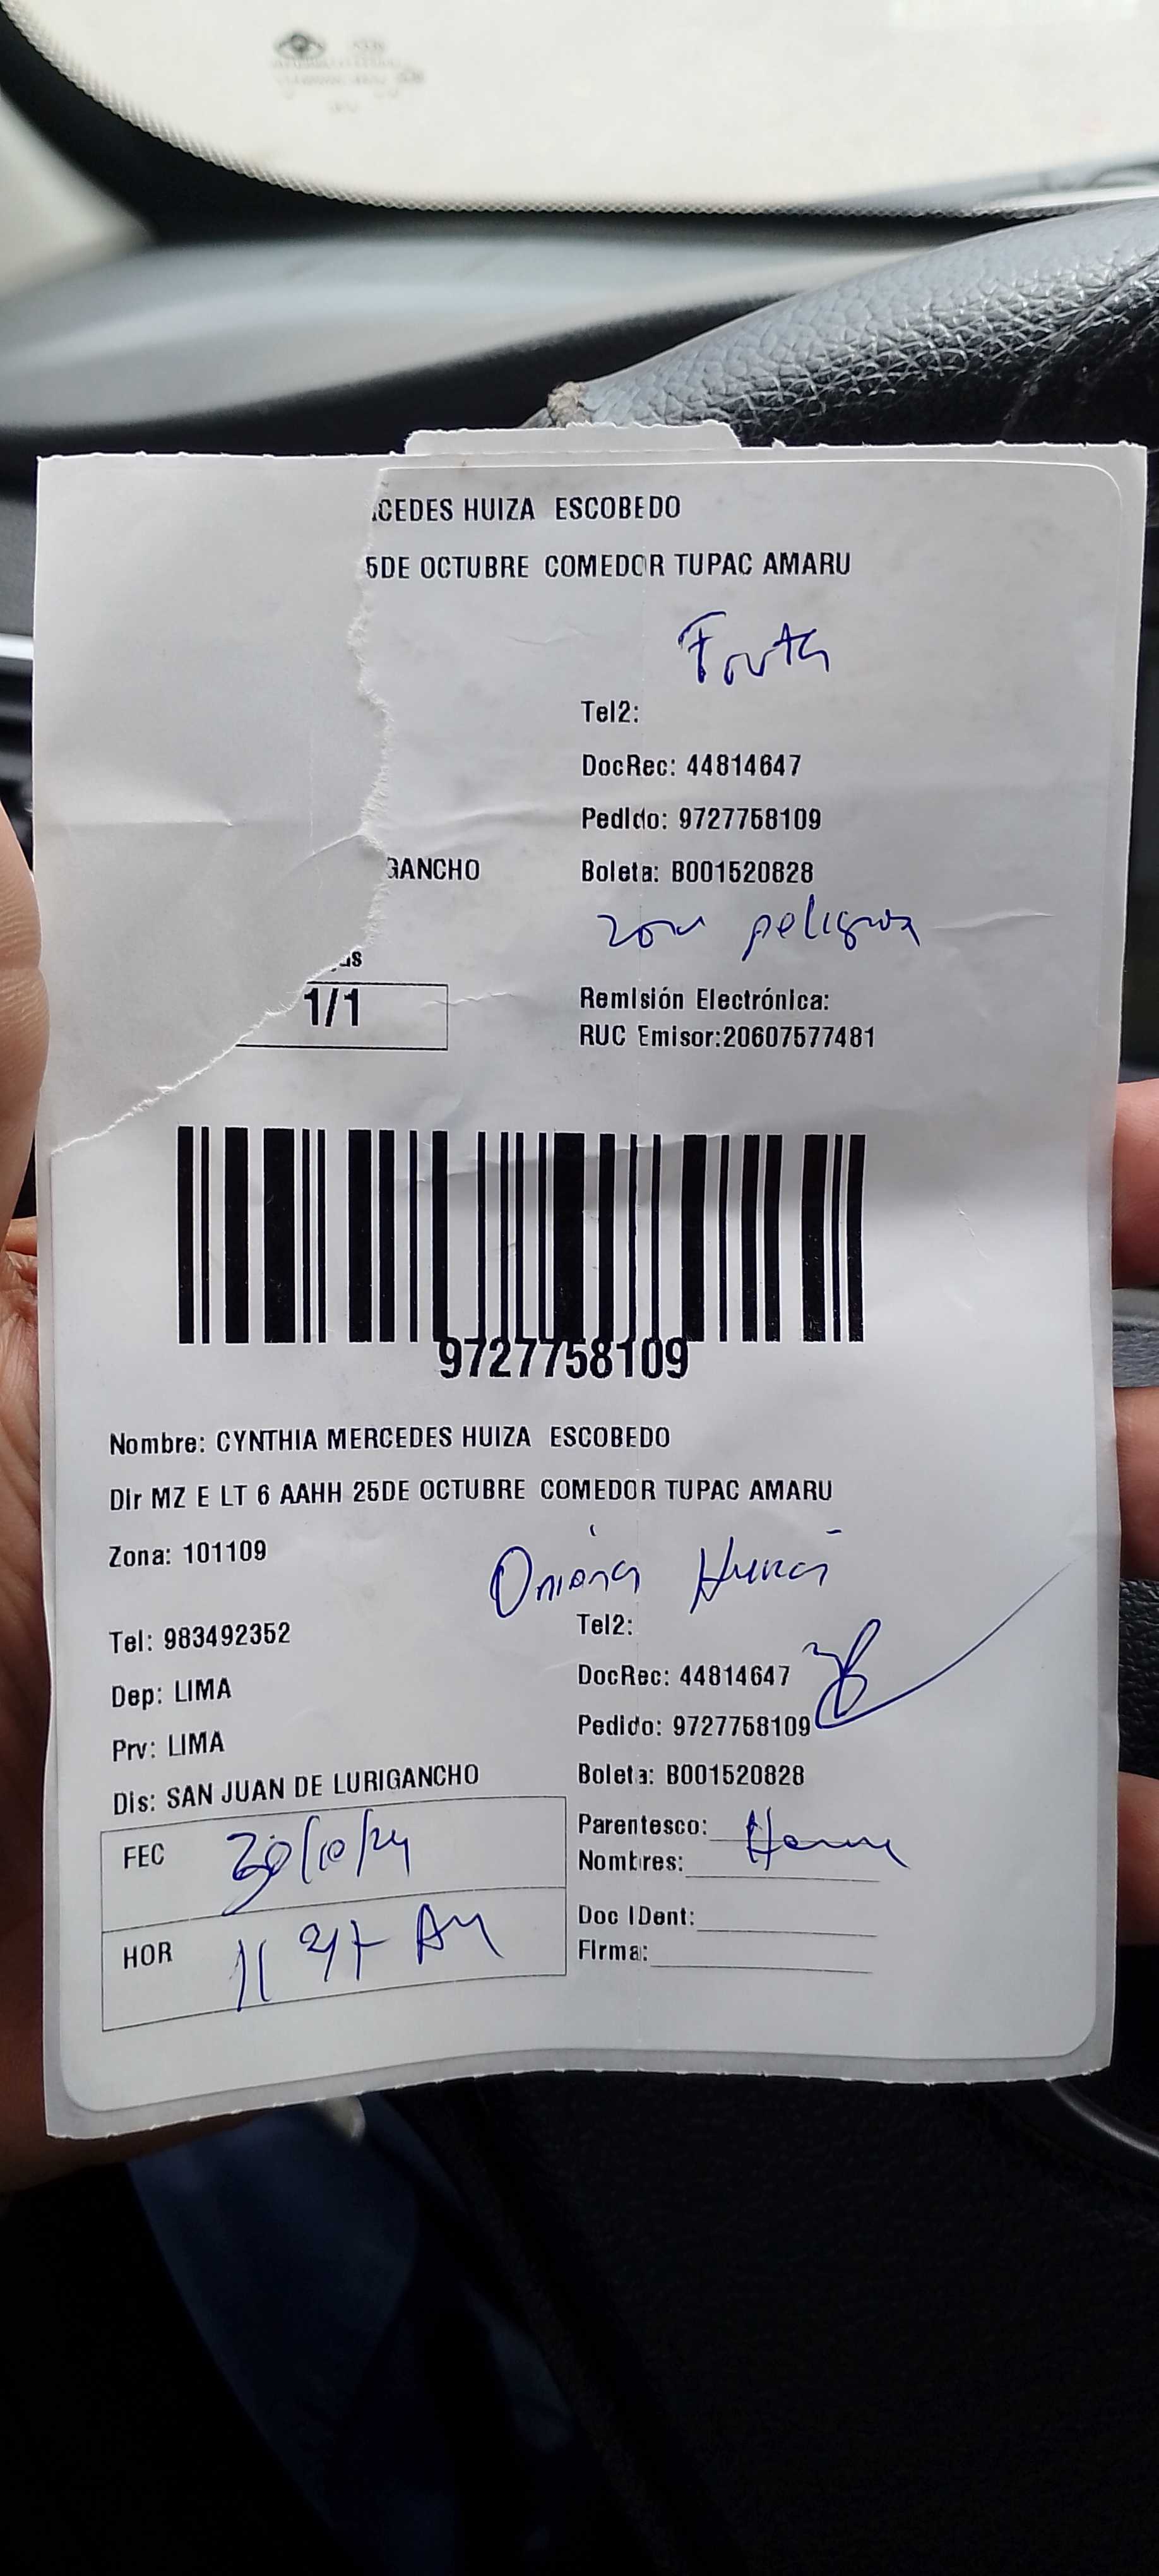 CEDES HUIZA ESCOBEDO
5DE OCTUBRE COMEDOR TUPAC AMARU
Tel2:
DocRec: 44814647
Pedido: 9727758109
GANCHO
Boleta: B001520828
zona peligrosa
1/1
Remisión Electrónica:
RUC Emisor:20607577481
9727758109
Nombre: CYNTHIA MERCEDES HUIZA ESCOBEDO
Dir MZ E LT 6 AAHH 25DE OCTUBRE COMEDOR TUPAC AMARU
Zona: 101109
Tel: 983492352
Tel2:
Dep: LIMA
DocRec: 44814647
Prv: LIMA
Pedido: 9727758109
Dis: SAN JUAN DE LURIGANCHO
Boleta: B001520828
FEC 30/10/24
Parentesco:
Nombres:
HOR 11 47 AM
Doc IDent:
Firma: